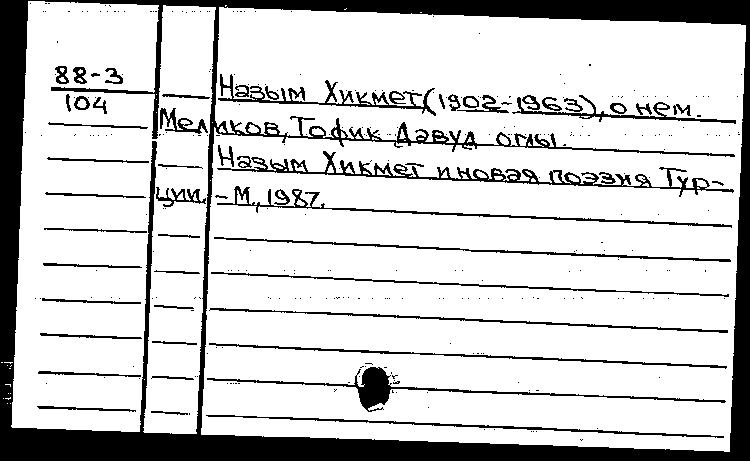 88-3
104
Назым Хикмет, (1902-1963), о нем.
Меликов, Тофик Давуд оглы.
Назым Хикмет и новая поэзия Тур-
ции. - М., 1987.